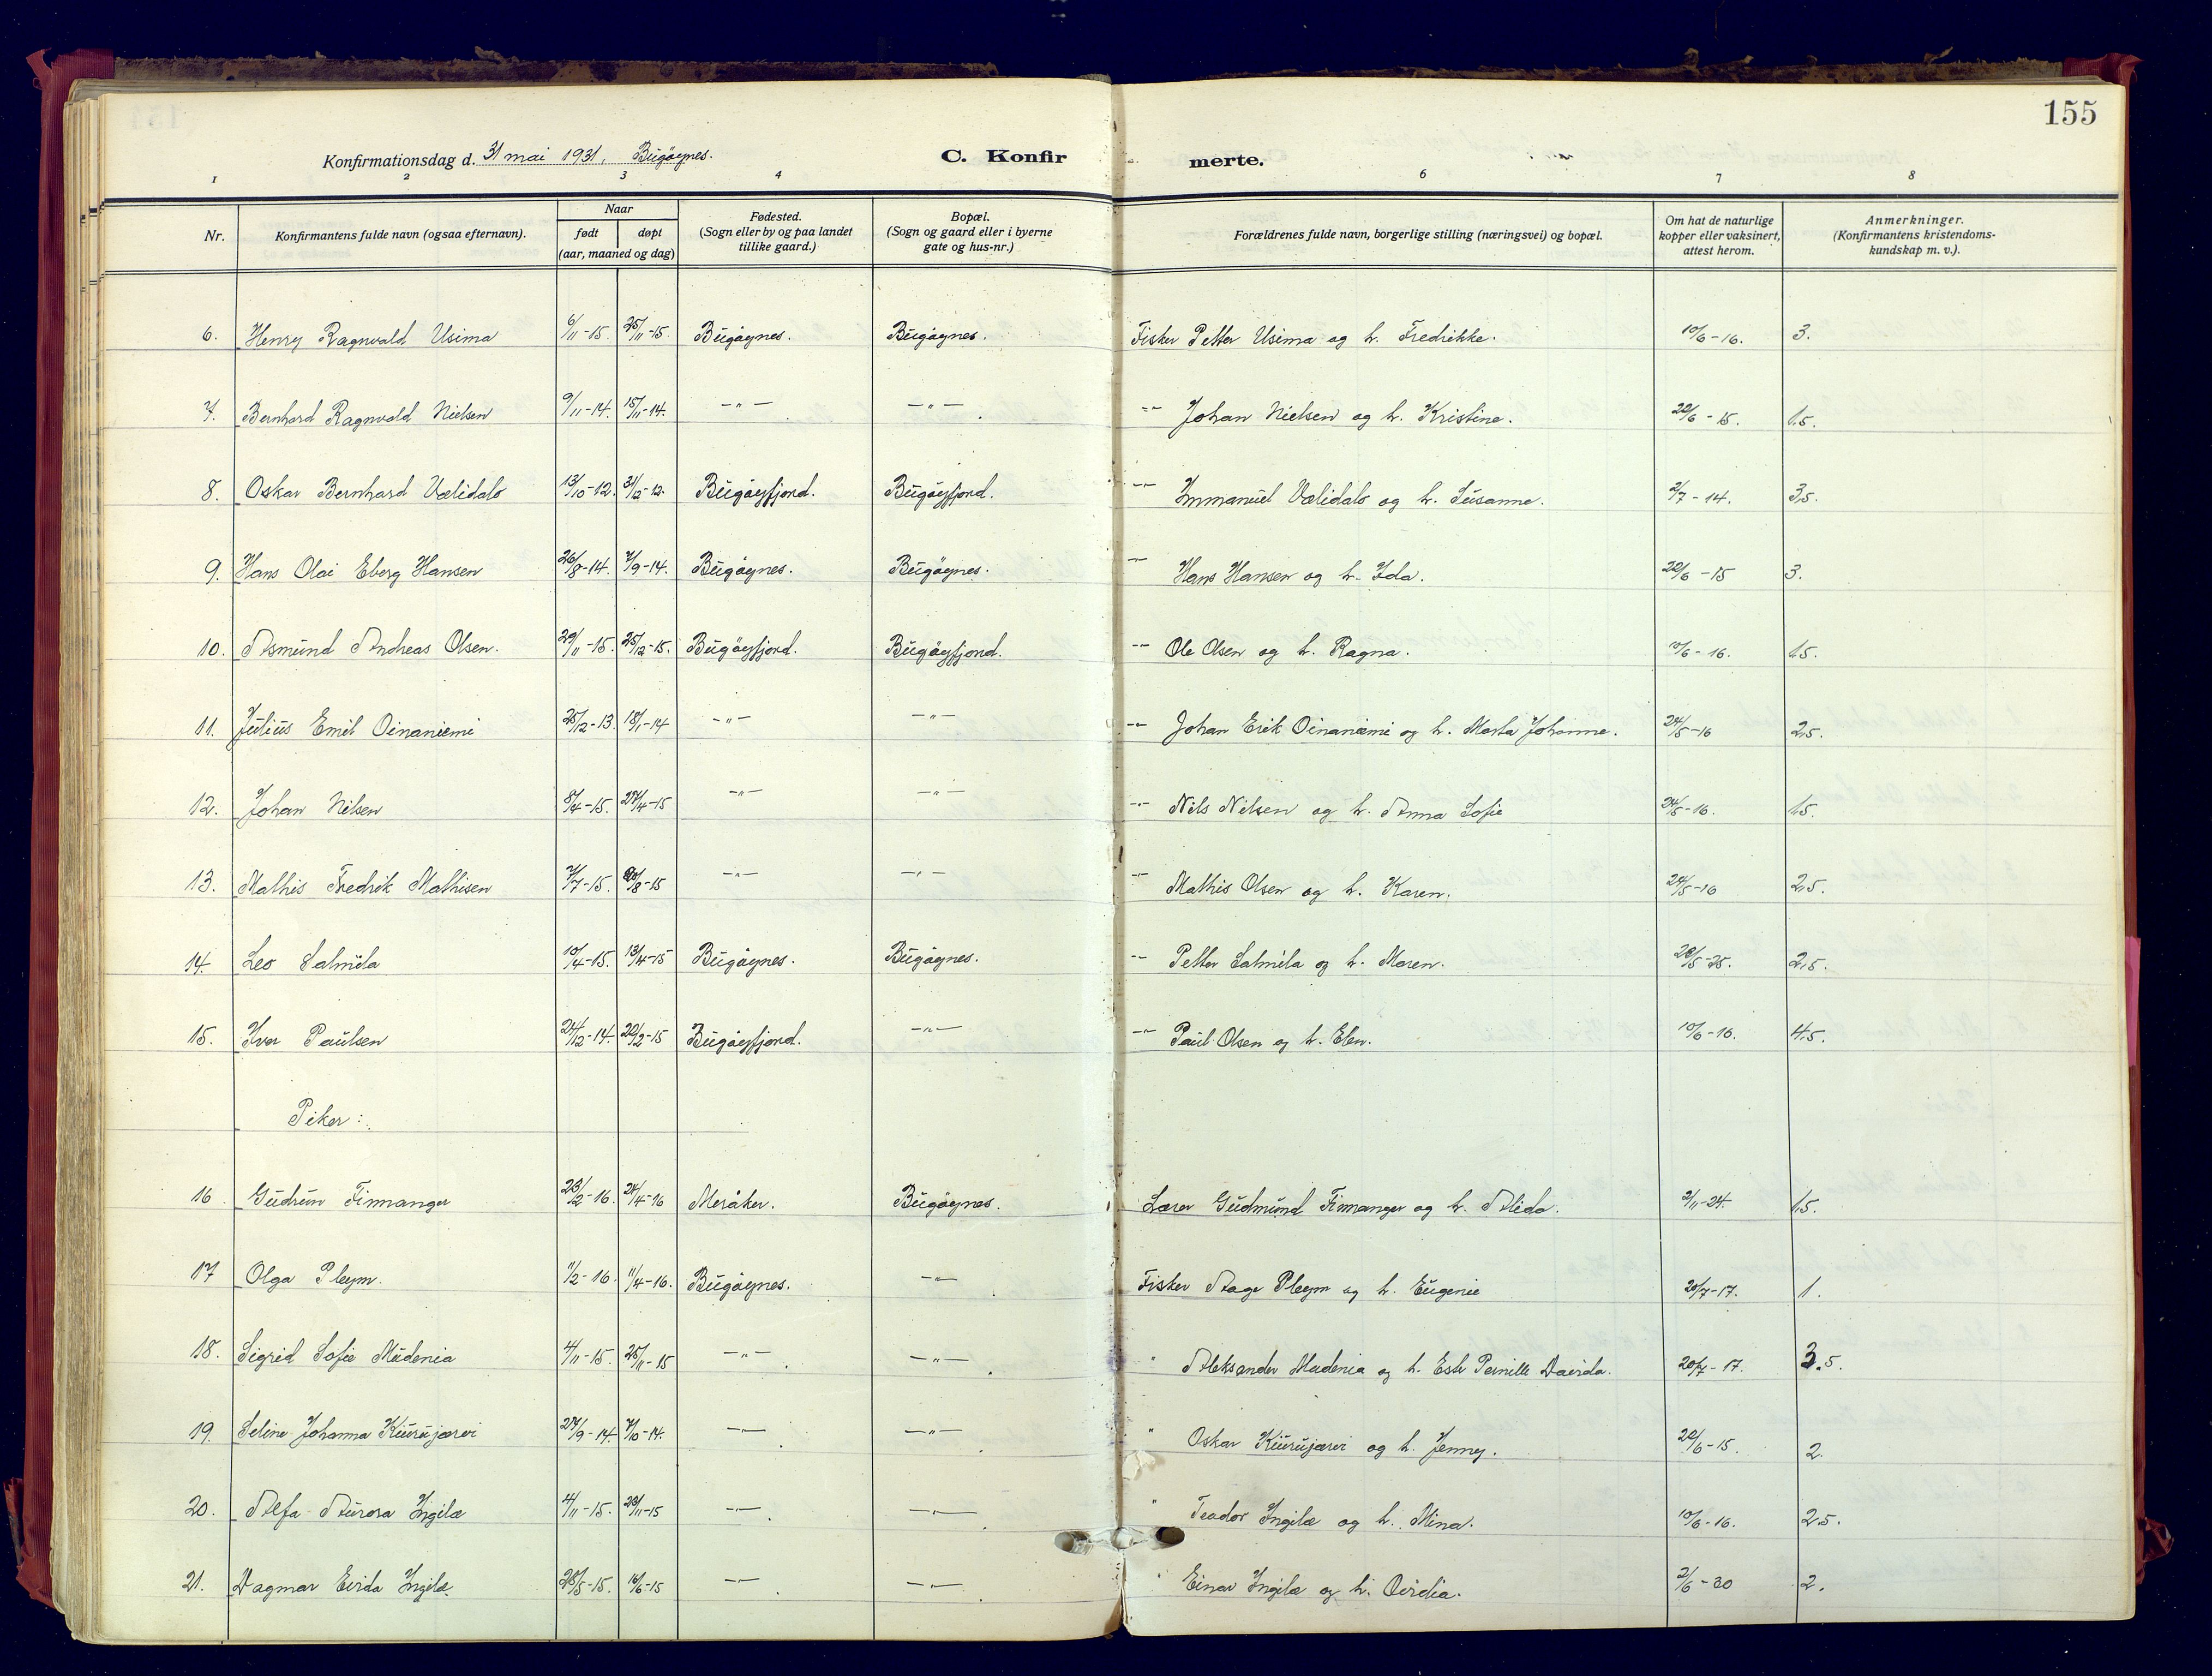 155
Konfirmationsdag d. 31 mai 1931, Bugøynes. C. Konfir merte.
1 2 3 4 6 7 8
Nr. Konfirmantens fulde navn (ogsaa efternavn). Naar født døpt (aar, maaned og dag) Fødested. (Sogn eller by og paa landet tillike gaard.) Bopæl. (Sogn og gaard eller i byerne gate og hus-nr.) Forældrenes fulde navn, borgerlige stilling (næringsvei) og bopæl. Om hat de naturlige kopper eller vaksinert, attest herom. Anmerkninger. (Konfirmantens kristendoms-kundskap m. v.).
6. Henry Ragnvald Usima 6/11-15. 25/11-15. Bugøynes. Bugøynes. Fisker Petter Usima og h. Fredrikke. 10/6-16. 3.
7. Bernhard Ragnvald Nielsen 9/11-14. 15/11-14. —"— —"— —"— Johan Nielsen og h. Kristine. 22/6-15. 1.5.
8. Oskar Bernhard Vælidalo 13/10-12. 31/12-12. Bugøyfjord. Bugøyfjord. —"— Immanuel Vælidalo og h. Susanne. 2/7-14. 3,5.
9. Hans Olai Eberg Hansen 26/8-14. 7/9-14. Bugøynes. Bugøynes. —"— Hans Hansen og h. Ida. 22/6-15 3.
10. Asmund Andreas Olsen. 29/11-15. 25/12-15. Bugøyfjord. Bugøyfjord. —"— Ole Olsen og h. Ragna. 10/6-16. 1.5.
11. Julius Emil Oinaniemi 25/12-13. 18/1-14 —"— —"— —"— Johan Erik Oinaniemi og h. Marta Johanne. 24/5-16 2,5.
12. Johan Nilsen 8/4-15. 27/4-15 —"— —"— —"— Nils Nilsen og h. Anna Sofie 24/5-16. 1.5.
13. Mathis Fredrik Mathisen 7/7-15. /8-15 —"— —"— —"— Mathis Olsen og h. Karen. 24/5-16 2,5.
14. Leo Salmila 10/4-15. 13/4-15 Bugøynes. Bugøynes. —"— Petter Salmila og h. Maren. 28/5-25. 2,5.
15. Iver Paulsen 24/12-14. 20/2-15 Bugøyfjord. —"— —"— Paul Olsen og h. Elen. 10/6-16. 4.5.
Piker:
16. Gudrun Finnanger 23/2-16. 24/4-16 Meråker. Bugøynes. Lærer Gudmund Finnanger og h. Alida. 2/11-24. 1.5.
17 Olga Pleym. 11/2-16. 11/4-16. Bugøynes. —"— Fisker Aage Pleym og h. Eugenie 20/7-17. 1.
18. Sigrid Sofie Madenia 4/11-15. 25/11-15 —"— —"— " Aleksander Madenia og h. Ester Pernille Davida. 20/7-17. 3.5.
19. Seline Johanna Kiurujærvi 27/9-14. 7/10-14. —"— —"— " Oskar Kiurujærvi og h. Jenny. 22/6-15. 2.
20. Alfa Aurora Ingilæ 4/11-15. 23/11-15 —"— —"— " Teador Ingilæ og h. Mina. 10/6-16. 2.5.
21. Dagmar Eirda Ingilæ. 28/5-15. 16/6-15 —"— —"— " Einar Ingilæ og h. 2/6-30 2.